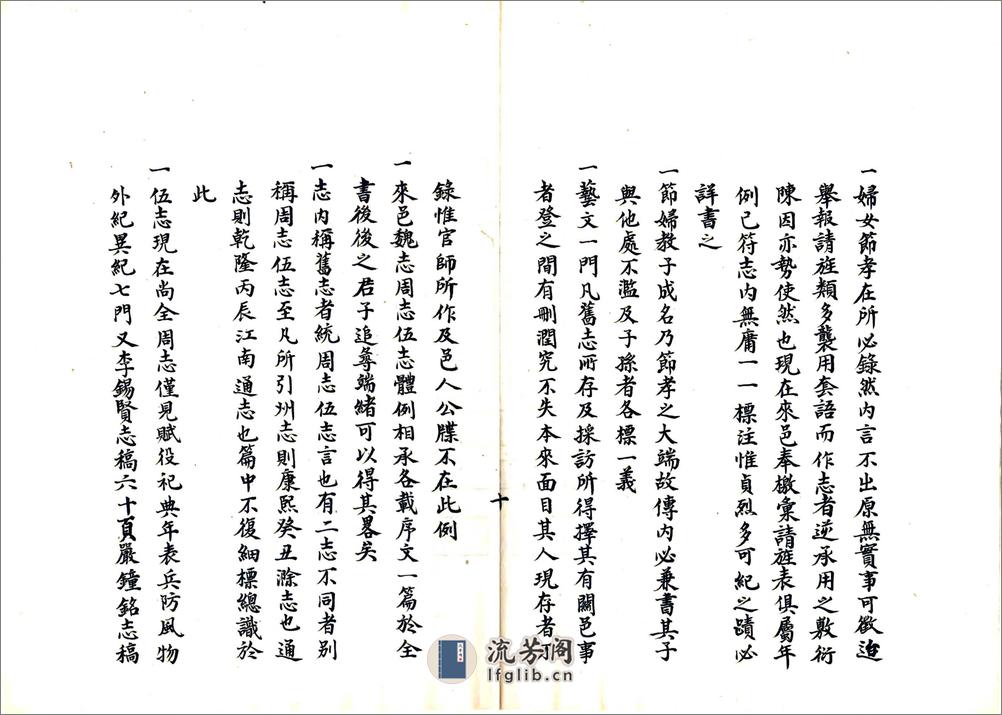 一婦女節孝在所必錄然内言不出原無實事可徵迨
舉報請旌類多襲用套語而作志者逆承用之敷衍
陳因亦勢使然也現在來邑奉檄彙請旌表俱屬年
例已符志内無庸一一標注惟貞烈多可紀之蹟必
詳書之
一節婦教子成名乃節孝之大端故傳内必兼書其子
與他處不濫及子孫者各標一義
一藝文一門凡舊志所存及採訪所得擇其有關邑事
者登之間有刪潤究不失本來面目其人現存者
十
錄惟官師所作及邑人公牒不在此例
一來邑魏志周志伍志體例相承各載序文一篇於全
書後後之君子追尋端緒可以得其畧矣
一志内稱舊志者統周志伍志言也有二志不同者别
稱周志伍志至凡所引州志則康熙癸丑滁志也通
志則乾隆丙辰江南通志也篇中不復細標總識於
此
一伍志現在尚全周志僅見賦役祀典年表兵防風物
外紀異紀七門又李錫賢志稿六十頁嚴鐘銘志稿
流芳阁
lfglib.cn